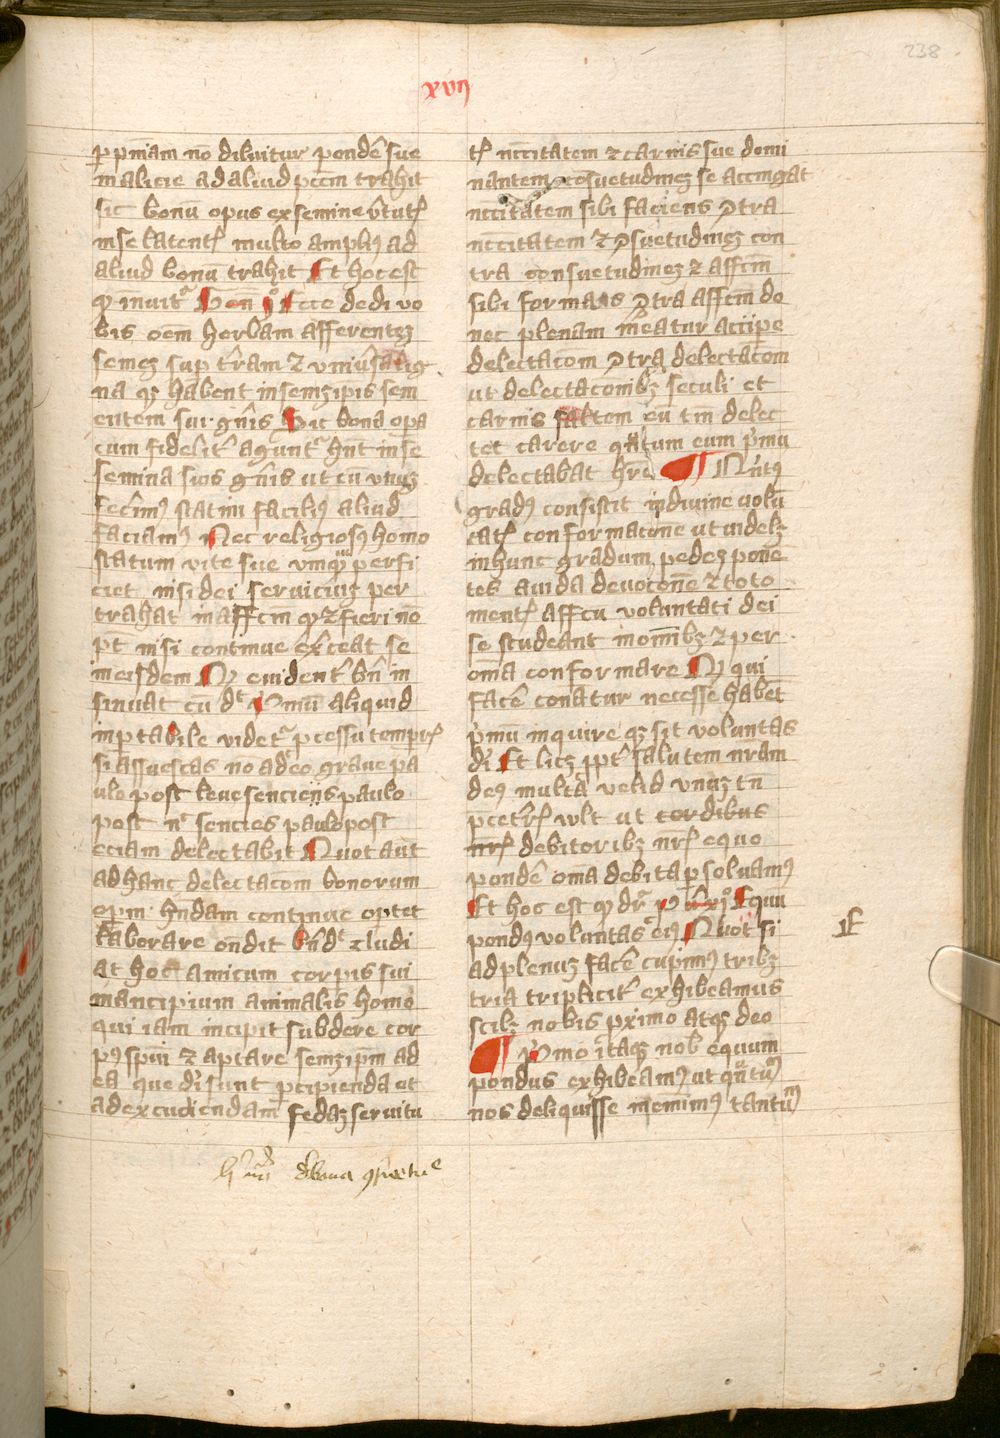 238
xvij
p pm̄am no diluitur pondẽ sue
malicie ad aliud pccm trahit
sic bonū opus ex semine v̓tutꝭ
in se latentꝭ multo ampliꝰ ad
aliud bonū trahit Et hoc est
qͥ Gen̄ jͦ Ecce dedi vo
bis oēm herbam afferentem
semeʒ sup t̄ram ⁊ vniūsa lig
na qʒ habent in semʒ ipis sem
entem sui gn̄is Sic bona opa
cum fidelit̓ agunt᷑ hn̄t in se
semina sui gn̄is ut cū vnuʒ
fecim̄ꝰ statim faciliꝰ aliud
faciamꝰ Nec religiosꝰ homo
statum vite sue vmqᷓꝫ perfi
ciet nisi dei seruiciuʒ per
trahat in affcm̄ qͥ ⁊ fieri nō
pt nisi continue exc̓eat se
in eisdem Qͥ euident̓ bn̄ in
sinuat cū dt Primū aliquid
inportabile videt᷑ pcessu temporꝭ
si assuescas nō adeo graue pa
ulo post leue sencies paulo
post nͨ sencies paulo post
eciam delectabit Quot aūt
ad hanc delectacōm bonorum
operū hn̄dam continue optet
laborare on̄dit bn̄ dt
at hoc amicum corpis sui
mancipium animalis homo
qui iam incipit subdere cor
pꝰ spūi ⁊ aptare semʒipm̄ ad
ea que di sunt pcipienda et
ad excudiendam fedaʒ seruitu
tꝭ nccitatem ⁊ carnis sue domi
nantem cōsuetudineʒ se accingat
nccitatem sibi faciens ꝯtra
nccitatem ⁊ ꝯsuetudineʒ con
tra consuetudineʒ ⁊ affcm̄
sibi formans ꝯtra affcm̄ do
nec plenam m̄eatur accipe
delectacōm ꝯtra delectacōm
ut delectaconibʒ seculi et
carnis saltem eū tm̄ delec
tet carere qn̄tum eum pͥmu
delectabat hr̄e ¶ Quintꝰ
gradꝰ consistit in diuine uolū
tatꝭ conformacione ut videlʒ
in hunc gradum pedeʒ ponē
tes auida deuocōne ⁊ toto
mentꝭ affcu voluntati dei
se studeant in om̄ibʒ ⁊ per
om̄a conformare Qͥ qui
facē conatur necesse habet
pͥmū inquire qʒ sit voluntas
di Et licʒ ppt̓ salutem nr̄am
deꝰ multa velid vnuʒ tn̄
pcet̓rꝭ vlt ut cordibus
nr̄ꝭ debitoribʒ nr̄ꝭ equo
pondē om̄a debita psoluamꝰ
Et hoc est qͥ dr̄ Equū
pondꝰ voluntas eiꝰ Quot si
ad plenuʒ facē cupimꝰ tribʒ
tria triplicit̓ exhibeamus
scilʒ nobis pximo atqʒ deo
¶ Pͥmo itaqʒ nob̄ equum
pondus exhibeamꝰ ut qn̄tuᷓ
nos deliquisse memimꝰ tantuᷓ